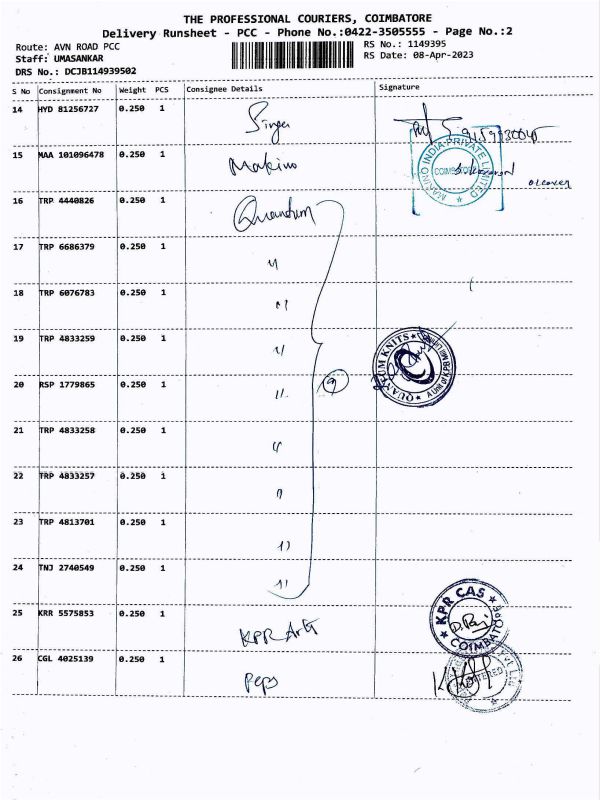 THE PROFESSIONAL COURIERS, COIMBATORE
Delivery Runsheet - PCC - Phone No.:0422-3505555 - Page No.:2
Route: AVN ROAD PCC
Staff: UMASANKAR
DRS No.: DCJB114939502
RS No.: 1149395
RS Date: 08-Apr-2023
S No Consignment No Weight PCS Consignee Details Signature
14 HYD 81256727 0.250 1 Singer
15 MAA 101096478 0.250 1 Makino
MAKINO INDIA PRIVATE LIMITED
COIMBATORE
16 TRP 4440826 0.250 1 Quantum
17 TRP 6686379 0.250 1 "
18 TRP 6076783 0.250 1 "
19 TRP 4833259 0.250 1 "
QUANTUM KNITS
20 RSP 1779865 0.250 1 " 9
21 TRP 4833258 0.250 1 "
22 TRP 4833257 0.250 1 "
23 TRP 4813701 0.250 1 "
24 TNJ 2740549 0.250 1 "
25 KRR 5575853 0.250 1 KPR
KPR CAS
COIMBATORE
26 CGL 4025139 0.250 1 Peps